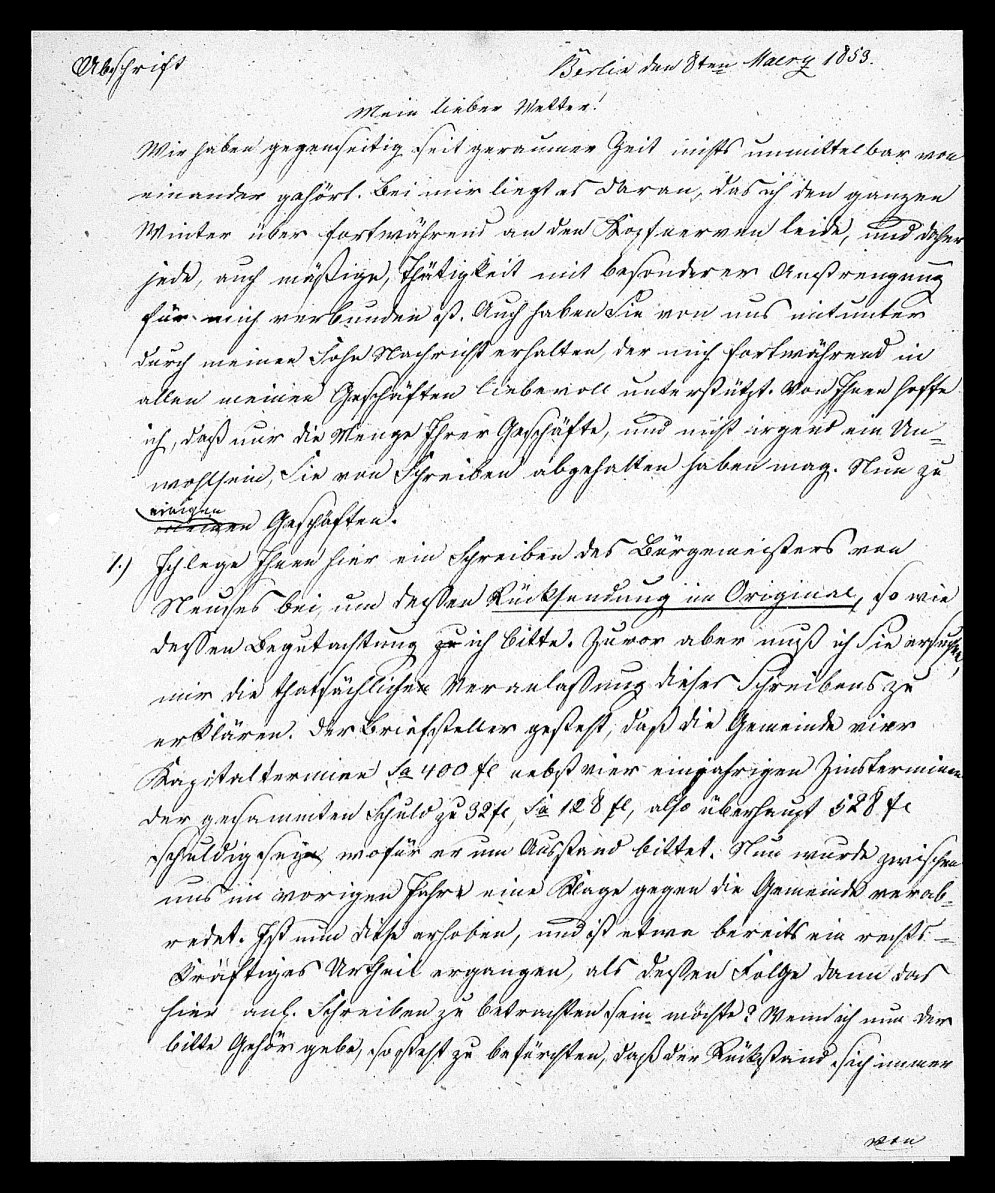 Abschrift
Berlin den 8ten Maerz 1853.
Mein lieber Vetter!
Wir haben gegenseitig seit geraumer Zeit nichts unmittelbar von
einander gehört. Bei mir liegt es daran, das ich den ganzen
Winter über fortwährend an den Kopfnerven leide, und daher
jede, auch mäßige, Thätigkeit mit besonderer Anstrengung
für mich verbunden ist. Auch haben Sie von uns mitunter
durch meinen Sohn Nachricht erhalten, der mich fortwährend in
allen meinen Geschäften liebevoll unterstützt. Von Ihnen hoffe
ich, daß nur die Menge Ihrer Geschäfte, und nicht irgend ein Un-
wohlsein, Sie von Schreiben abgehalten haben mag. Nun zu
einigen
meinen Geschäften.
1.) Ich lege Ihnen hier ein Schreiben des Bürgemeisters von
Neuses bei, um dessen Rücksendung im Original, so wie
dessen Begutachtung zu ich bitte. Zuvor aber muß ich Sie ersuchen,
mir die thatsächlichen Veranlaßung dieses Schreibens zu
erklären. Der Briefsteller gesteht, daß die Gemeinde vier
Kapitaltermine Sa 400 fl nebst vier einjahrigen Zinsterminen
der gesammten Schuld zu 32 fl, Sa 128 fl, also überhaupt 528 fl
schuldig sey, wofür er um Ausstand bittet. Nun wurde zwischen
uns im vorigen Jahre eine Klage gegen die Gemeinde verab-
redet. Ist nun diese erhoben, und ist etwa bereits ein rechts-
kräftiges Urtheil ergangen, als dessen Folge dann das
hier anl. Schreiben zu betrachten sein möchte? Wenn ich nun der
bitte Gehör gebe, so steht zu befürchten, daß der Rückstand sich immer
von